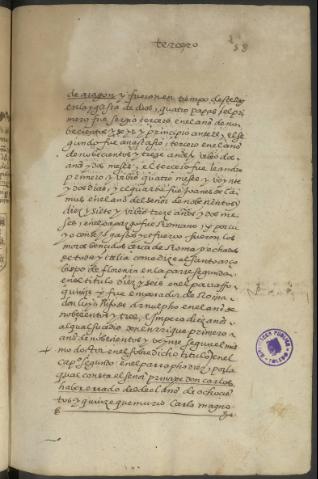 tercero
58
de aragon y fueron en tiempo deste Rey
en la yglesia de dios, quatro papas el pri
mero fue sergio tercero, en el año de no
becientos y seys y principio ante el, el se
gundo fue anastasio: tercero en el año
de nobecientos y treze años y vibio dos
años y dos meses: el tercero fue leandro
primero, y vibio quatro meses y veynte
y dos dias, y el quarto fue joanes decimo
mus en el año del señor de nobecientos y
diez y siete y vibio treze años y dos me
ses, este papa fue Romano, y por su
y consejo y esfuerzo fueron los
moros bençidos cerca de Roma y echados
de toda ytalia como dize el santo arço
bispo de florencia en la parte segunda
en el titulo diez y seis en el parrafo
quinze y fue emperador de Roma
don luys hijo de arnulpho en el año de
nobecientos y tres, e ymperó diez años
al qual sucedio don enrrique primero
año de nobecientos y veynte segun el mis
mo doctor en el sobre dicho titulo, en el
cap.º segundo en el parrapho diez, por la
qual consta el señor principe don carlos
haber errado desde el año de ochocien
tos y quinze que murio Carlo magno